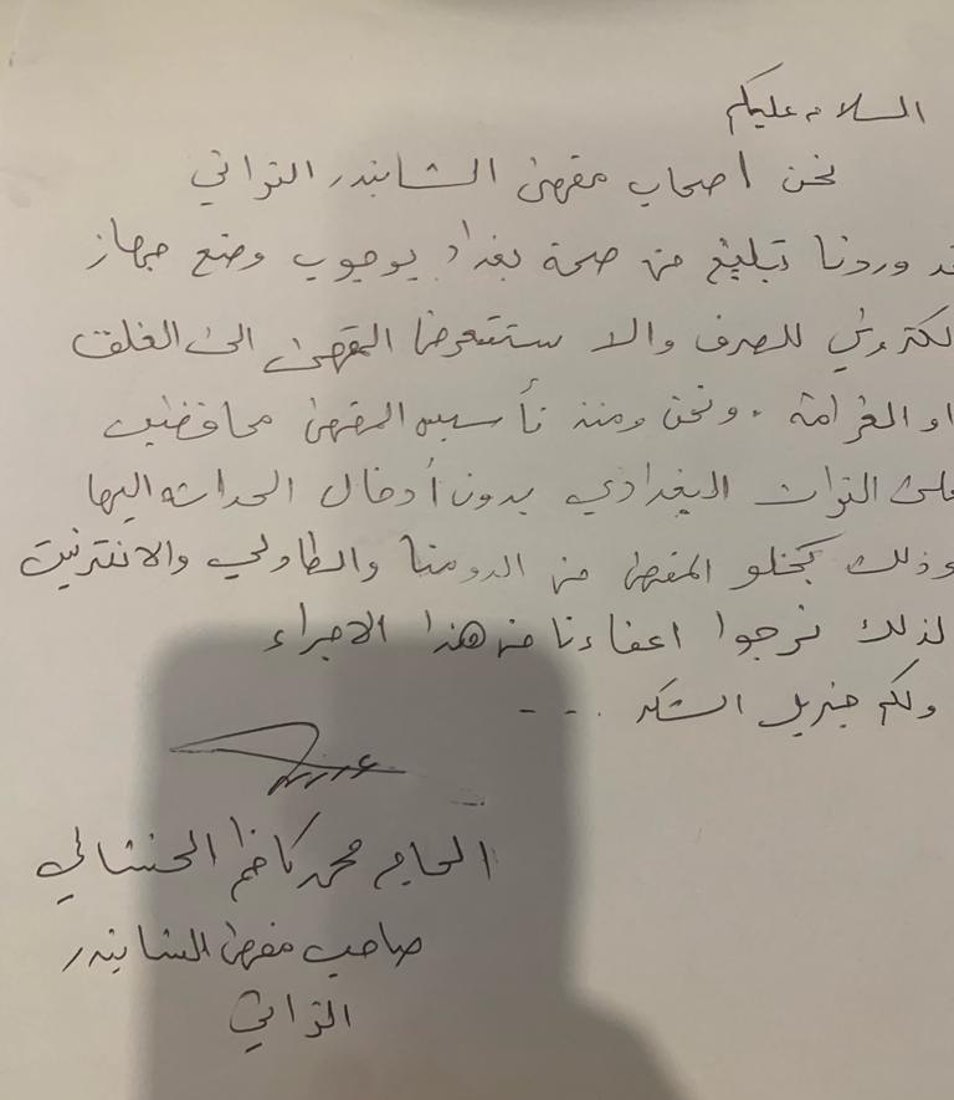 السلام عليكم
نحن اصحاب مقهى الشابندر التراثي
قد وردنا تبليغ من صحة بغداد بوجوب وضع جهاز
لكتروني للصرف والا ستتعرض المقهى الى الغلق
او الغرامة . ونحن ومنذ تأسيس المقهى محافظين
على التراث البغدادي بدون أدخال الحداثه اليها
وذلك بخلو المقهى من الدومنا والطاولي والانترنيت
لذلك نرجوا اعفاءنا من هذا الاجراء
ولكم جزيل الشكر ...
الحاج محمد كاظم الخشالي
صاحب مقهى الشابندر
التراثي